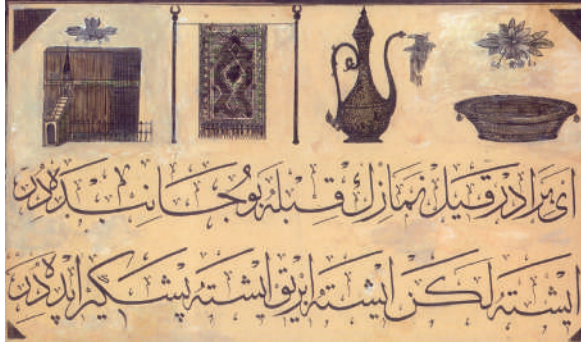 ای برادر قیل نمازك قبله بو جانبده در
ایشته لكن ایشته ابریق ایشته پشكیر ایپده در